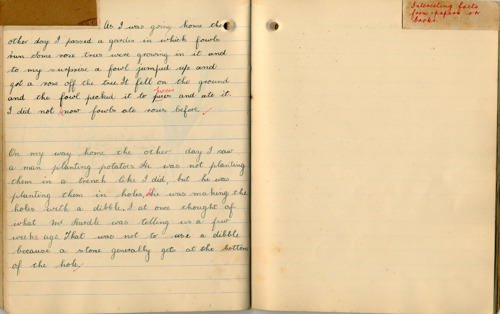 As I was going home the
other day I passed a garden in which fowls
run some rose trees were growing in it and
to my surprise a fowl jumped up and
got a rose off the tree. It fell on the ground
pieces
and the fowl pecked it to pieces and ate it.
I did not know fowls ate roses before.
On my way home the other day I saw
a man planting potatoes. He was not planting
them in a trench like I did, but he was
planting them in holes, he was making the
holes with a dibble. I at once thought of
what Mr was telling us a few
weeks ago. That was not to use a dibble
because a stone generally gets at the bottom
of the hole.
Interesting facts
from papers or
books.